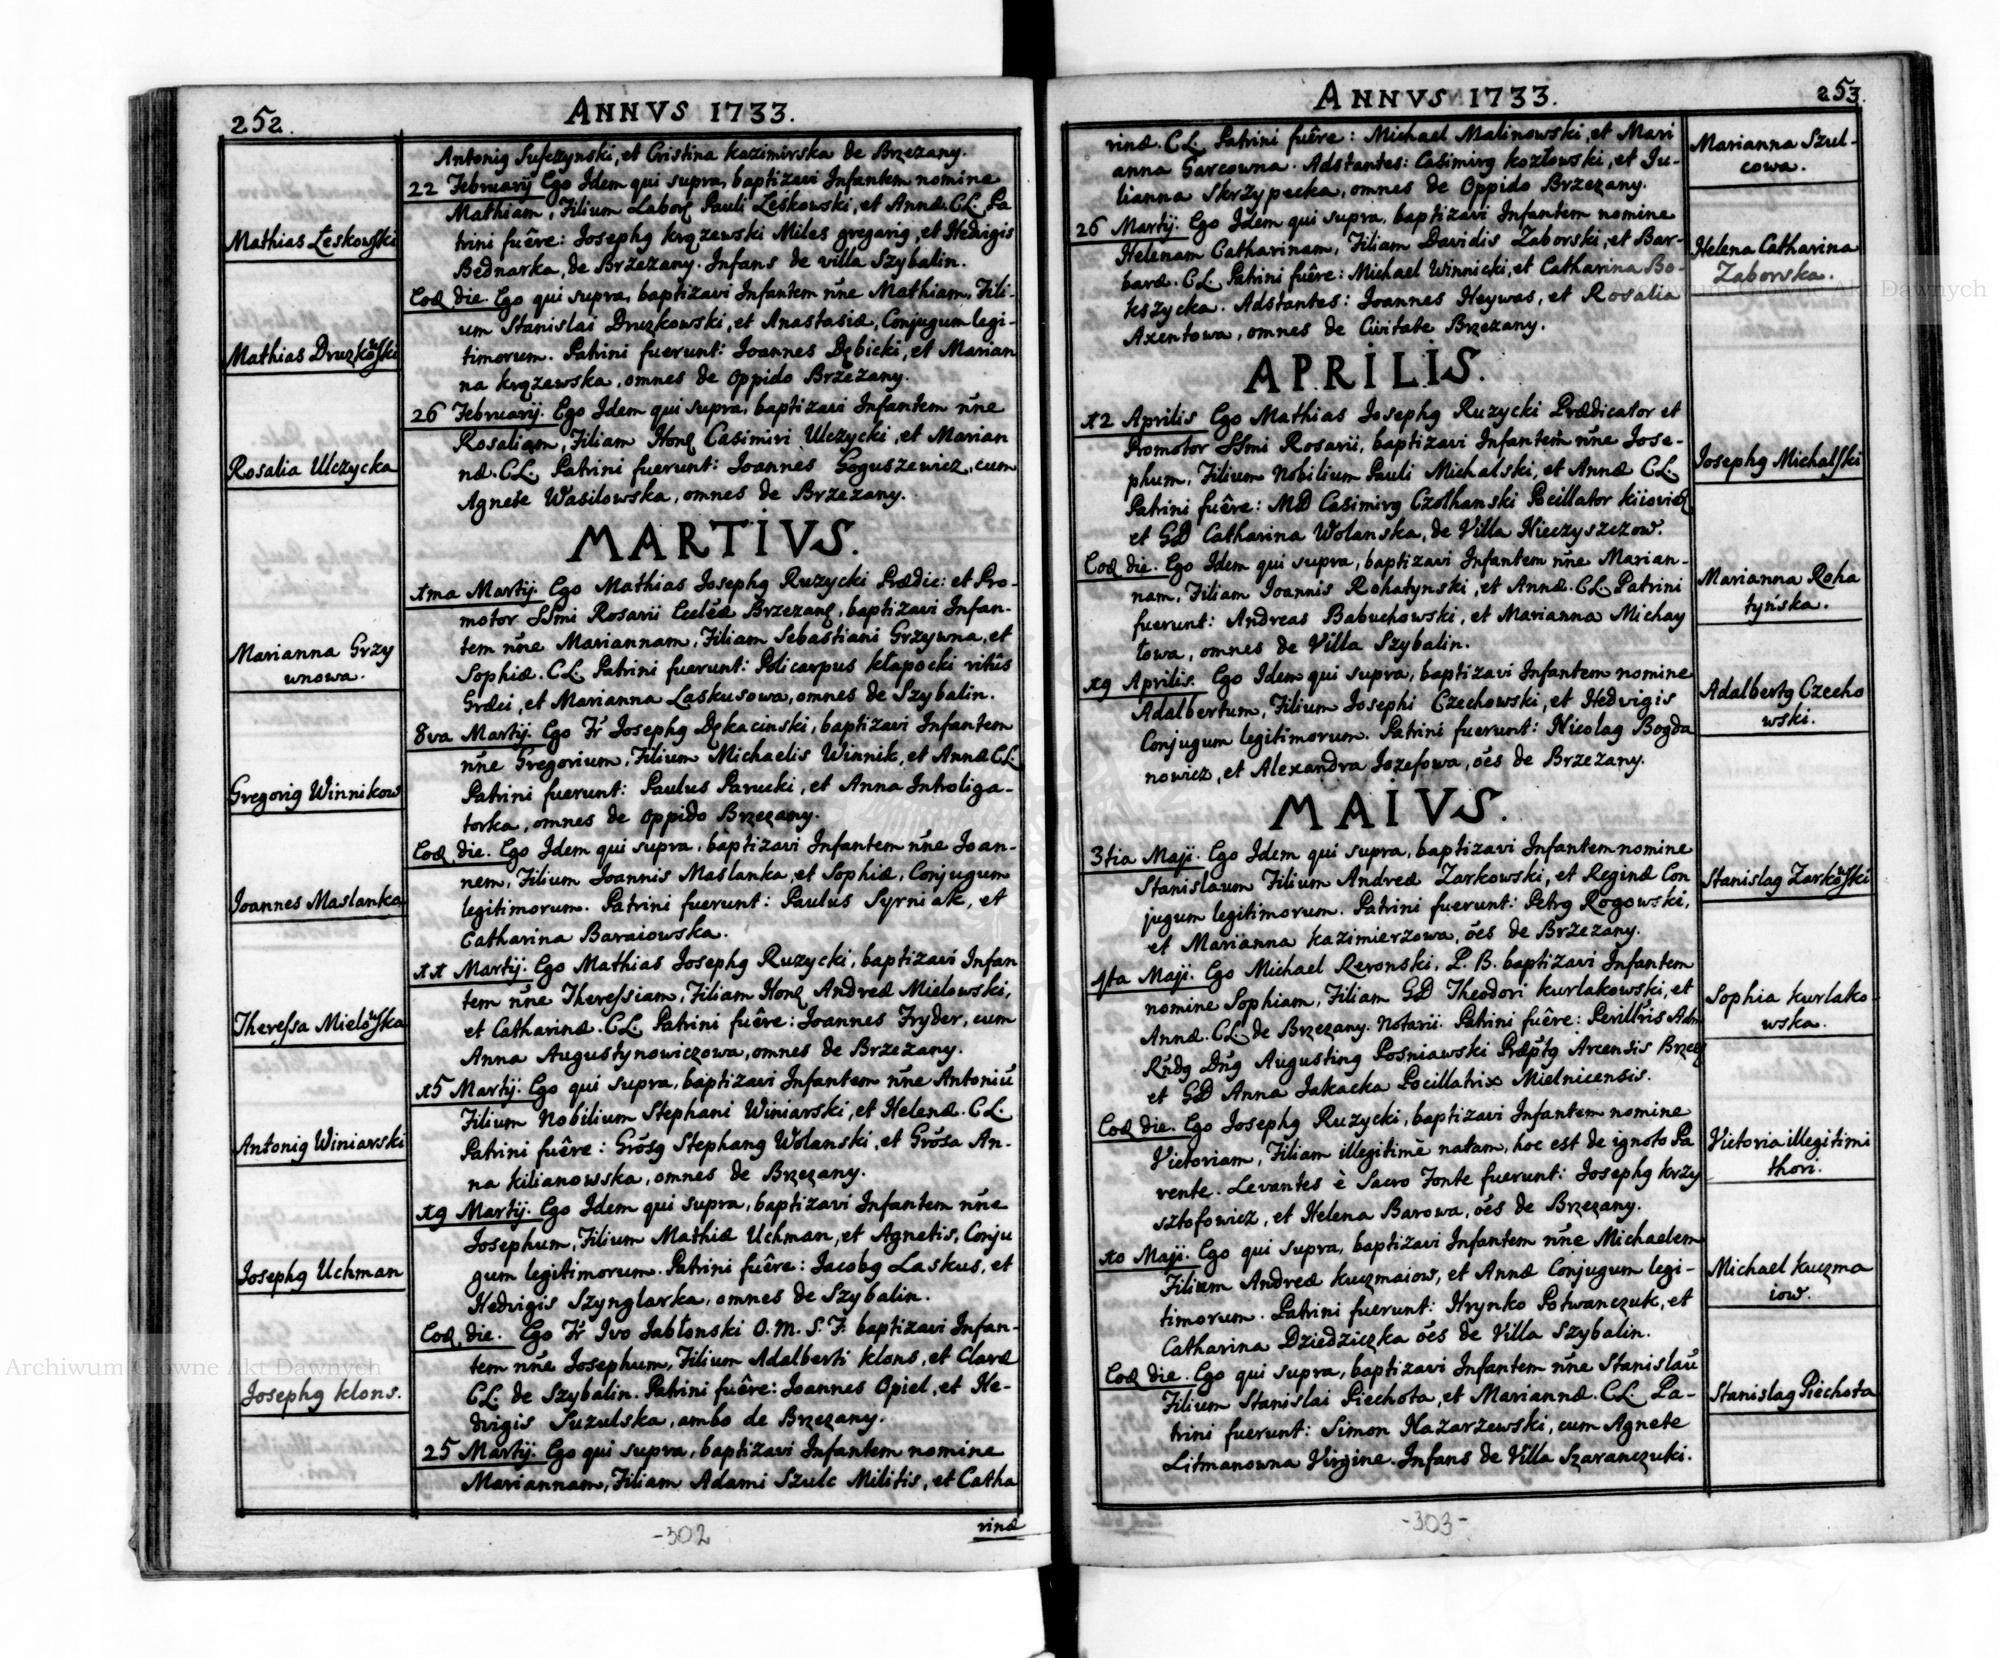 252.
ANNVS 1733.
Antonig Sufczynski, et Cristina Kazimirska de Brzezany.
22 Februarij Ego Idem qui supra, baptizavi Infantem nomine
Mathiam, Filium Labor Pauli Leskowski, et Annæ. CL. Pa
Mathias Leskowski
trini fuêre: Josephg Krązewski Miles gregarig, et Hedvigis
Bednarka, de Brzezany. Infans de villa Szybalin.
Eod die. Ego qui supra, baptizavi Infantem nne Mathiam, Fili-
um Stanislai Druzkowski, et Anastasiæ, Conjugum legi-
Mathias Druzkowski
timorum. Patrini fuerunt: Joannes Dębicki, et Marian
na Krązewska, omnes de Oppido Brzezany.
26 Februarij. Ego Idem qui supra, baptizavi Infantem nne
Rosaliam, Filiam Hon Casimiri Ulczycki, et Marian
Rosalia Ulczycka
næ. CL. Patrini fuerunt: Joannes Goguszewicz, cum
Agnete Wasilowska, omnes de Brzezany.
MARTIVS.
1ma Martij. Ego Mathias Josephg Ruzycki Prædic: et Pro-
motor SSmi Rosarii Eccleæ Brzezan, baptizavi Infan-
tem nne Mariannam, Filiam Sebastiani Grzywna, et
Marianna Grzy
wnowa.
Sophiæ. CL. Patrini fuerunt: Policarpus Kłapocki ritûs
Græci, et Marianna Laskusowa, omnes de Szybalin.
8va Martij. Ego Fr Josephg Dękacinski, baptizavi Infantem
nne Gregorium, Filium Michaelis Winnik, et Annæ CL.
Gregorig Winnikow
Patrini fuerunt: Paulus Parucki, et Anna Introliga-
torka, omnes de Oppido Brzezany.
Eod die. Ego Idem qui supra, baptizavi Infantem nne Joan-
nem, Filium Joannis Maslanka, et Sophiæ, Conjugum
Joannes Maslanka
legitimorum. Patrini fuerunt: Paulus Syrniak, et
Catharina Baraiowska.
11 Martij. Ego Mathias Josephg Ruzycki, baptizavi Infan
tem nne Theressiam, Filiam Hon Andreæ Mielowski,
Theressa Mielowska
et Catharinæ. CL. Patrini fuêre: Joannes Fryder, cum
Anna Augustynowiczowa, omnes de Brzezany.
15 Martij. Ego qui supra, baptizavi Infantem nne Antoniū
Filium Nobilium Stephani Winiarski, et Helenæ. CL.
Antonig Winiarski
Patrini fuêre: Grosg Stephang Wolanski, et Grosa An-
na Kilianowska, omnes de Brzezany.
19 Martij. Ego Idem qui supra, baptizavi Infantem nne
Josephum, Filium Mathiæ Uchman, et Agnetis, Conju
Josephg Uchman
gum legitimorum. Patrini fuêre: Jacobg Laskus, et
Hedvigis Szynglarka, omnes de Szybalin.
Eod die. Ego Fr Ivo Jabłonski O. M. S. F. baptizavi Infan-
tem nne Josephum, Filium Adalberti Klons, et Claræ
Josephg Klons.
CL. de Szybalin. Patrini fuêre: Joannes Opiel, et He-
dvigis Suzulska, ambo de Brzezany.
25 Martij. Ego qui supra, baptizavi Infantem nomine
Mariannam, Filiam Adami Szulc Militis, et Catha
rinæ
-302
ANNVS 1733.
253.
rinæ. CL. Patrini fuêre: Michael Malinowski, et Mari
Marianna Szul-
cowa.
anna Garcowna. Adstantes: Casimirg Kozłowski, et Ju-
lianna Skrzypecka, omnes de Oppido Brzezany.
26 Martij. Ego Idem qui supra, baptizavi Infantem nomine
Helenam Catharinam, Filiam Davidis Zaborski, et Bar-
Helena Catharina
Zaborska.
baræ. CL. Patrini fuêre: Michael Winnicki, et Catharina Bo-
kszycka. Adstantes: Joannes Heywas, et Rosalia
Axentowa, omnes de Civitate Brzezany.
APRILIS.
12 Aprilis Ego Mathias Josephg Ruzycki Prædicator et
Promotor SSmi Rosarii, baptizavi Infantem nne Jose-
Josephg Michalski
phum, Filium Nobilium Pauli Michalski, et Annæ CL.
Patrini fuêre: MD Casimirg Czołhanski Pocillator Kiiovien
et GD Catharina Wolanska, de Villa Hieczyszczow.
Eod die. Ego Idem qui supra, baptizavi Infantem nne Marian-
nam, Filiam Joannis Rohatynski, et Annæ. CL. Patrini
Marianna Roha
tyńska.
fuerunt: Andreas Babuchowski, et Marianna Michay
łowa, omnes de Villa Szybalin.
19 Aprilis. Ego Idem qui supra, baptizavi Infantem nomine
Adalbertum, Filium Josephi Czechowski, et Hedvigis
Adalbertg Czecho
wski.
Conjugum legitimorum. Patrini fuerunt: Nicolag Bogda
nowicz, et Alexandra Jozefowa, oēs de Brzezany.
MAIVS.
3tia Maji. Ego Idem qui supra, baptizavi Infantem nomine
Stanislaum Filium Andreæ Zarkowski, et Reginæ Con
Stanislag Zarkowski
jugum legitimorum. Patrini fuerunt: Petrg Rogowski,
et Marianna Kazimierzowa, oēs de Brzezany.
4ta Maji. Ego Michael Revonski, P. B. baptizavi Infantem
nomine Sophiam, Filiam GD Theodori Kurlakowski, et
Sophia Kurlako-
wska.
Annæ. CL. de Brzezany. Notarii. Patrini fuêre: Perillris Adm
Rndg Dng Augusting Posniawski Præptg Arcensis Brzez
et GD Anna Jakacka Pocillatrix Mielnicensis.
Eod die. Ego Josephg Ruzycki, baptizavi Infantem nomine
Victoriam, Filiam illegitimè natam, hoc est de ignoto Pa
Victoria illegitimi
thori.
rente. Levantes è Sacro Fonte fuerunt: Josephg Krzy
sztofowicz, et Helena Barowa, oēs de Brzezany.
10 Maji. Ego qui supra, baptizavi Infantem nne Michaelem
Filium Andreæ Kuczmaiow, et Annæ Conjugum legi-
Michael Kuczma
iow.
timorum. Patrini fuerunt: Hrynko Potwanczuk, et
Catharina Dziedziczka oēs de Villa Szybalin.
Eod die. Ego qui supra, baptizavi Infantem nne Stanislaū
Filium Stanislai Piechota, et Mariannæ. CL. Pa-
Stanislag Piechota
trini fuerunt: Simon Nazarzewski, cum Agnete
Litmanowna Virgine. Infans de Villa Szaranczuki.
-303-
Archiwum Główne Akt Dawnych
Archiwum Główne Akt Dawnych